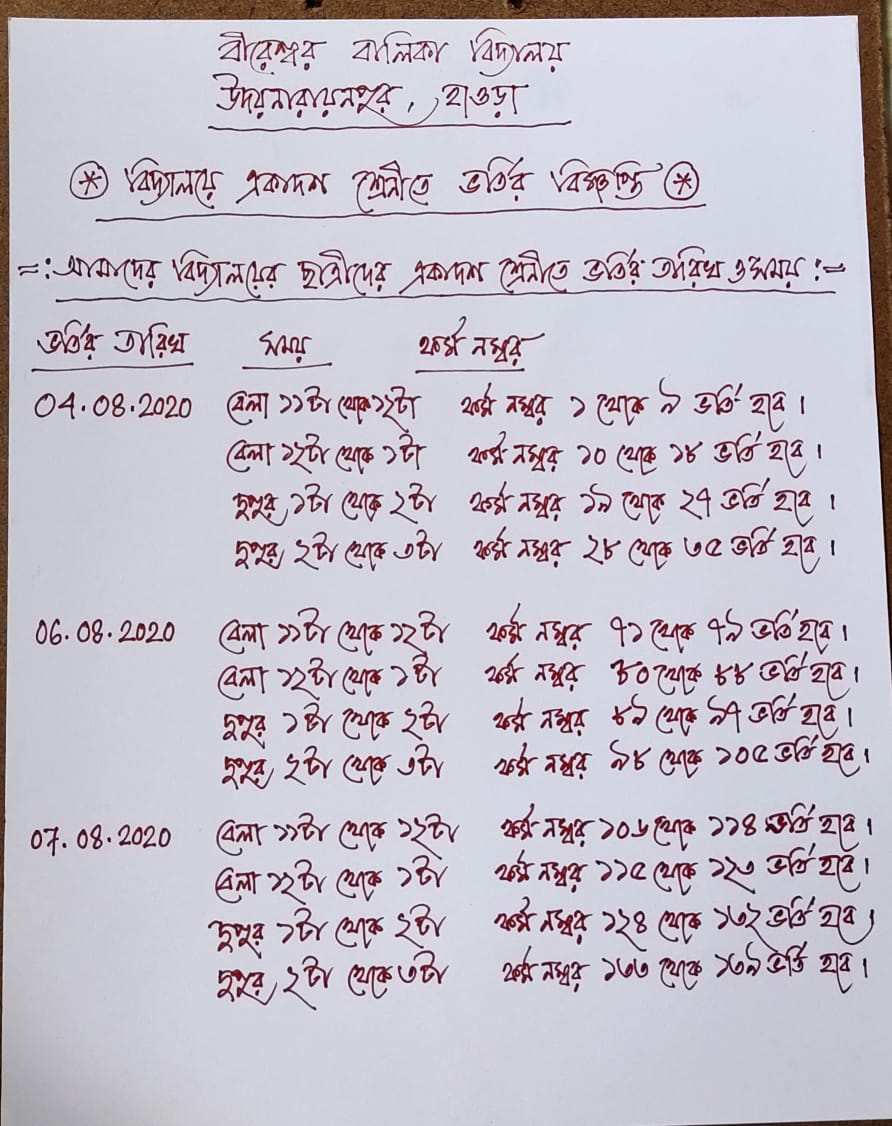 বীরেশ্বর বালিকা বিদ্যালয়
উদয়নারায়নপুর, হাওড়া
* বিদ্যালয়ে একাদশ শ্রেনীতে ভর্তির বিজ্ঞপ্তি *
=: আমাদের বিদ্যালয়ের ছাত্রীদের একাদশ শ্রেনীতে ভর্তির তারিখ ও সময় :=
ভর্তির তারিখ সময় ফর্ম নম্বর
04.08.2020 বেলা ১১টা থেকে ১২টা ফর্ম নম্বর ১ থেকে ৯ ভর্তি হবে।
বেলা ১২টা থেকে ১টা ফর্ম নম্বর ১০ থেকে ১৮ ভর্তি হবে।
দুপুর ১টা থেকে ২টা ফর্ম নম্বর ১৯ থেকে ২৭ ভর্তি হবে।
দুপুর ২টা থেকে ৩টা ফর্ম নম্বর ২৮ থেকে ৩৫ ভর্তি হবে।
06.08.2020 বেলা ১১টা থেকে ১২টা ফর্ম নম্বর ৭১ থেকে ৭৯ ভর্তি হবে।
বেলা ১২টা থেকে ১টা ফর্ম নম্বর ৮০ থেকে ৮৮ ভর্তি হবে।
দুপুর ১টা থেকে ২টা ফর্ম নম্বর ৮৯ থেকে ৯৭ ভর্তি হবে।
দুপুর ২টা থেকে ৩টা ফর্ম নম্বর ৯৮ থেকে ১০৫ ভর্তি হবে।
07.08.2020 বেলা ১১টা থেকে ১২টা ফর্ম নম্বর ১০৬ থেকে ১১৪ ভর্তি হবে।
বেলা ১২টা থেকে ১টা ফর্ম নম্বর ১১৫ থেকে ১২৩ ভর্তি হবে।
দুপুর ১টা থেকে ২টা ফর্ম নম্বর ১২৪ থেকে ১৩২ ভর্তি হবে।
দুপুর ২টা থেকে ৩টা ফর্ম নম্বর ১৩৩ থেকে ১৩৯ ভর্তি হবে।